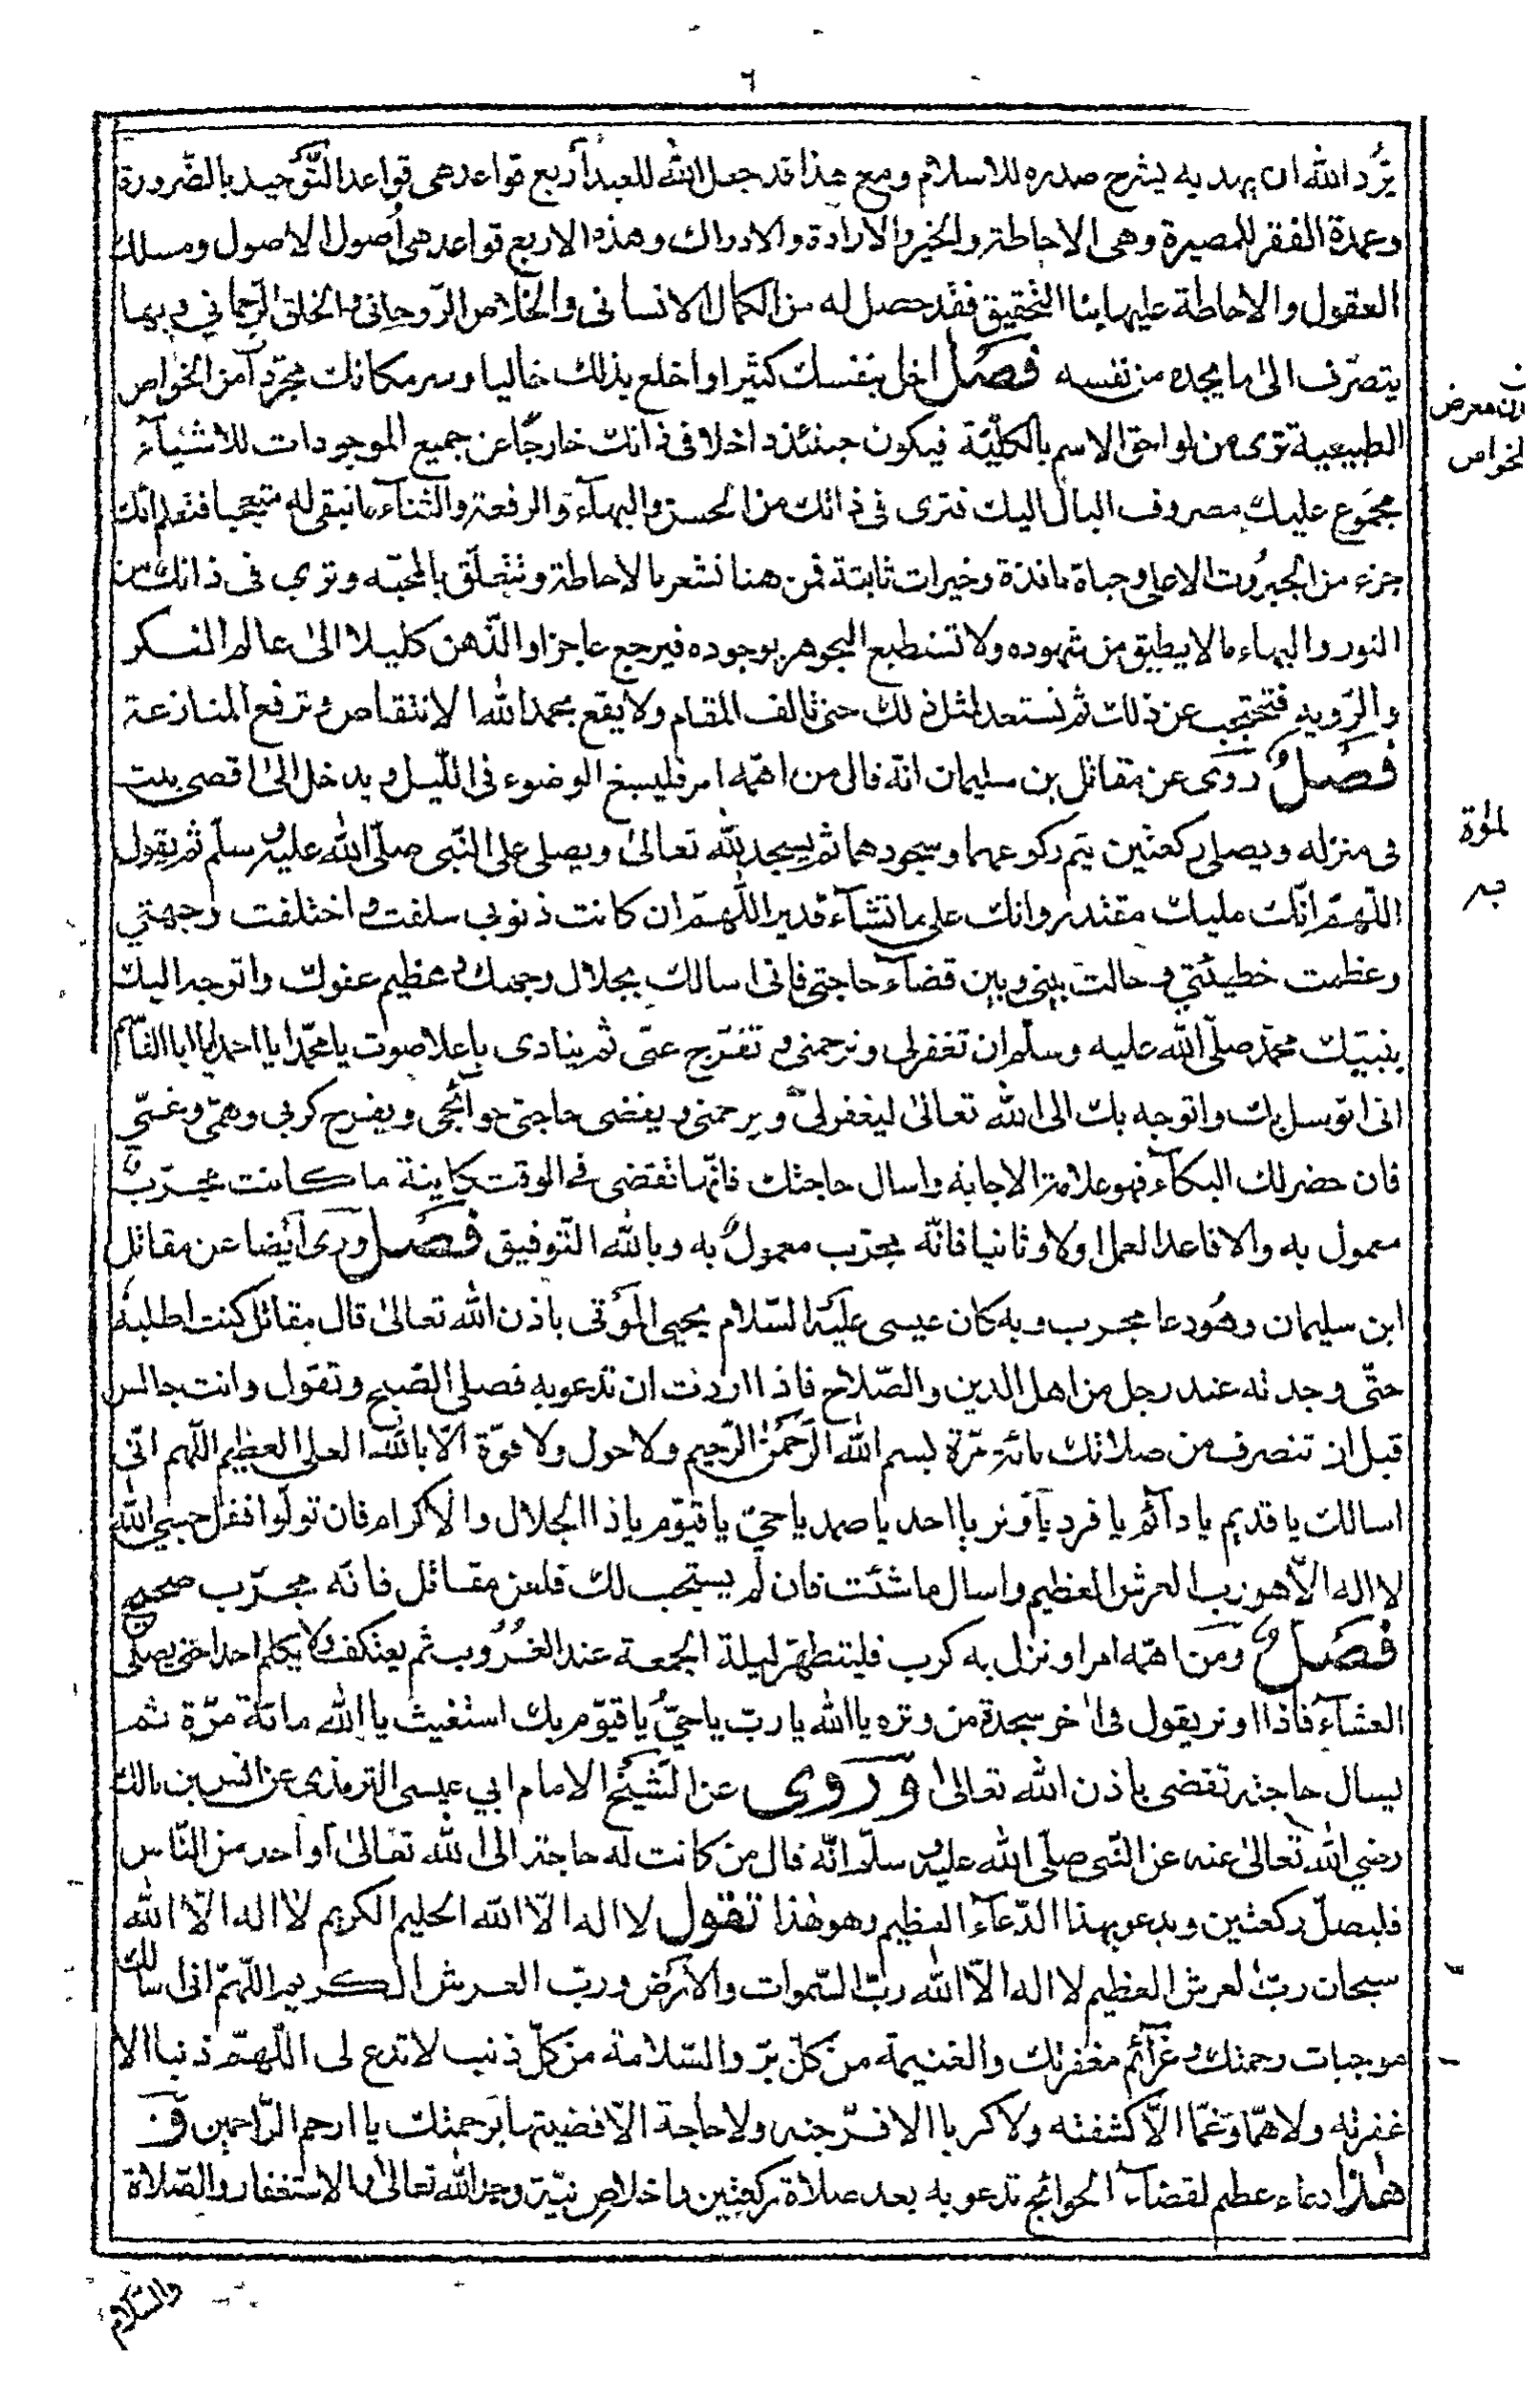 ٦
يرد الله ان يهديه يشرح صدره للاسلام ومع هذا قد جعل الله للعبد أربع قواعد هى قواعد التّوحيد بالضّرورة
وعمدة الفقر للمصيرة وهى الاحاطة والخير والارادة والادراك وهذه الاربع قواعد هى أصول الاصول ومسلك
العقول والاحاطة عليها بنا التحقيق فقد حصل له من الكمال الانسانى والخلاص الرّوحانى والخلق الرّحمانى وبها
يتصرّف الى ما يجده من نفسه فصل اخل بنفسك كثيرا واخلع بذلك خاليا وسر مكانك مجرّدا من الخواص
الطبيعية ترى من لواحق الاسم بالكليّة فيكون حينئذ داخلا فى ذاتك خارجًا عن جميع الموجودات للاشيآء
مجموع عليك مصروف البال اليك فترى فى ذاتك من الحسن والبهآء والرفعة والثناء ما تبقى له متعجبا فتعلم انك
جزء من الجبروت الاعلى وحياة نافذة وخيرات ثابتة فمن هنا تشعر بالاحاطة وتتعلّق بالمحبّه وترى فى ذاتك من
النور والبهاء ما لا يطيق من شهوده ولا تستطيع الجوهر بوجوده فيرجع عاجزا والذّهن كليلا الى عالم الفكر
والرّويه فتحتجب عن ذلك ثم تستعد لمثل ذلك حتى تالف المقام ولا يقع بحمد الله الانتقاص وترفع المنازعة
فصل روى عن مقاتل بن سليمان انه قال من اهمّه امر فليسبغ الوضوء فى اللّيل ويدخل الى اقصى بيت
فى منزله ويصلى ركعتين يتم ركوعهما وسجودهما ثم يسجد لله تعالى ويصلى على النّبى صلّى الله عليه وسلّم ثم يقول
اللّهمّ انّك مليك مقتدر وانك على ما تشآء قدير اللّهمّ ان كانت ذنوبى سلفت واختلفت وجهتي
وعظمت خطيئتي وحالت بينى وبين قضآء حاجتى فانى اسالك بجلال وجهك وعظيم عفوك واتوجه اليك
بنبيك محمّد صلّى الله عليه وسلّم ان تغفر لى وترحمنى وتفرّج عنّى ثم ينادى باعلا صوت يا محمّد يا احمد يا ابا القاسم
انى اتوسل بك واتوجه بك الى الله تعالى ليغفر لى ويرحمنى ويقضى حاجتى حوآئجى ويفرج كربى وهمّى وغمّي
فان حضر لك البكآء فهو علامة الاجابه واسال حاجتك فانّها تقضى فى الوقت كاينة ما كانت مجرّب
معمول به والا فاعد العمل اولا وثانيا فانّه مجرّب معمول به وبالله التّوفيق فصل وروى أيضا عن مقاتل
ابن سليمان وهو دعا مجرب وبه كان عيسى عليه السّلام يحيى الموتى باذن الله تعالى قال مقاتل كنت اطلبه
حتّى وجدته عند رجل من اهل الدين والصّلاح فاذا اردت ان تدعو به فصلى الصّبح وتقول وانت جالس
قبل ان تنصرف من صلاتك مائة مرّة بسم الله الرّحمن الرّحيم ولا حول ولا قوّة الّا بالله العلى العظيم اللّهم انّى
اسالك يا قديم يا دآئم يا فرد يا وتر يا احد يا صمد يا حيّ يا قيّوم يا ذا الجلال والاكرام فان تولّوا فقل حسبى الله
لا اله الّا هو رب العرش العظيم واسال ما شئت فان لم يستجب لك فلعن مقاتل فانه مجرّب صحيح
فصل ومن اهمّه امر او نزل به كرب فليتطهّر ليلة الجمعة عند الغروب ثم يعتكف ولا يكلم احدا حتى يصلّى
العشآء فاذا اوتر يقول فى اخر سجدة من وتره يا الله يا ربّ يا حيّ يا قيّوم بك استغيث يا الله مائة مرّة ثم
يسال حاجته تقضى باذن الله تعالى وروى عن الشّيخ الامام ابي عيسى الترمذى عن انس بن مالك
رضي الله تعالى عنه عن النّبى صلّى الله عليه وسلّم انّه قال من كانت له حاجة الى الله تعالى أو أحد من النّاس
فليصلّ ركعتين ويدعو بهذا الدّعآء العظيم وهو هذا تقول لا اله الّا الله الحليم الكريم لا اله الّا الله
سبحان ربّ العرش العظيم لا اله الّا الله ربّ السّموات والارض وربّ العرش الكريم اللّهمّ انى اسالك
موجبات رحمتك وعزآئم مغفرتك والغنيمة من كلّ برّ والسّلامة من كلّ ذنب لا تدع لى اللّهمّ ذنبا الا
غفرته ولا همّا وغمّا الّا كشفته ولا كربا الا فرّجته ولا حاجة الّا قضيتها برحمتك يا ارحم الرّاحمين
هذا دعاء عظيم لقضآء الحوائج تدعو به بعد صلاة ركعتين باخلاص نيّة وجه الله تعالى والاستغفار والصّلاة
معرض
الخواص
والسّلام